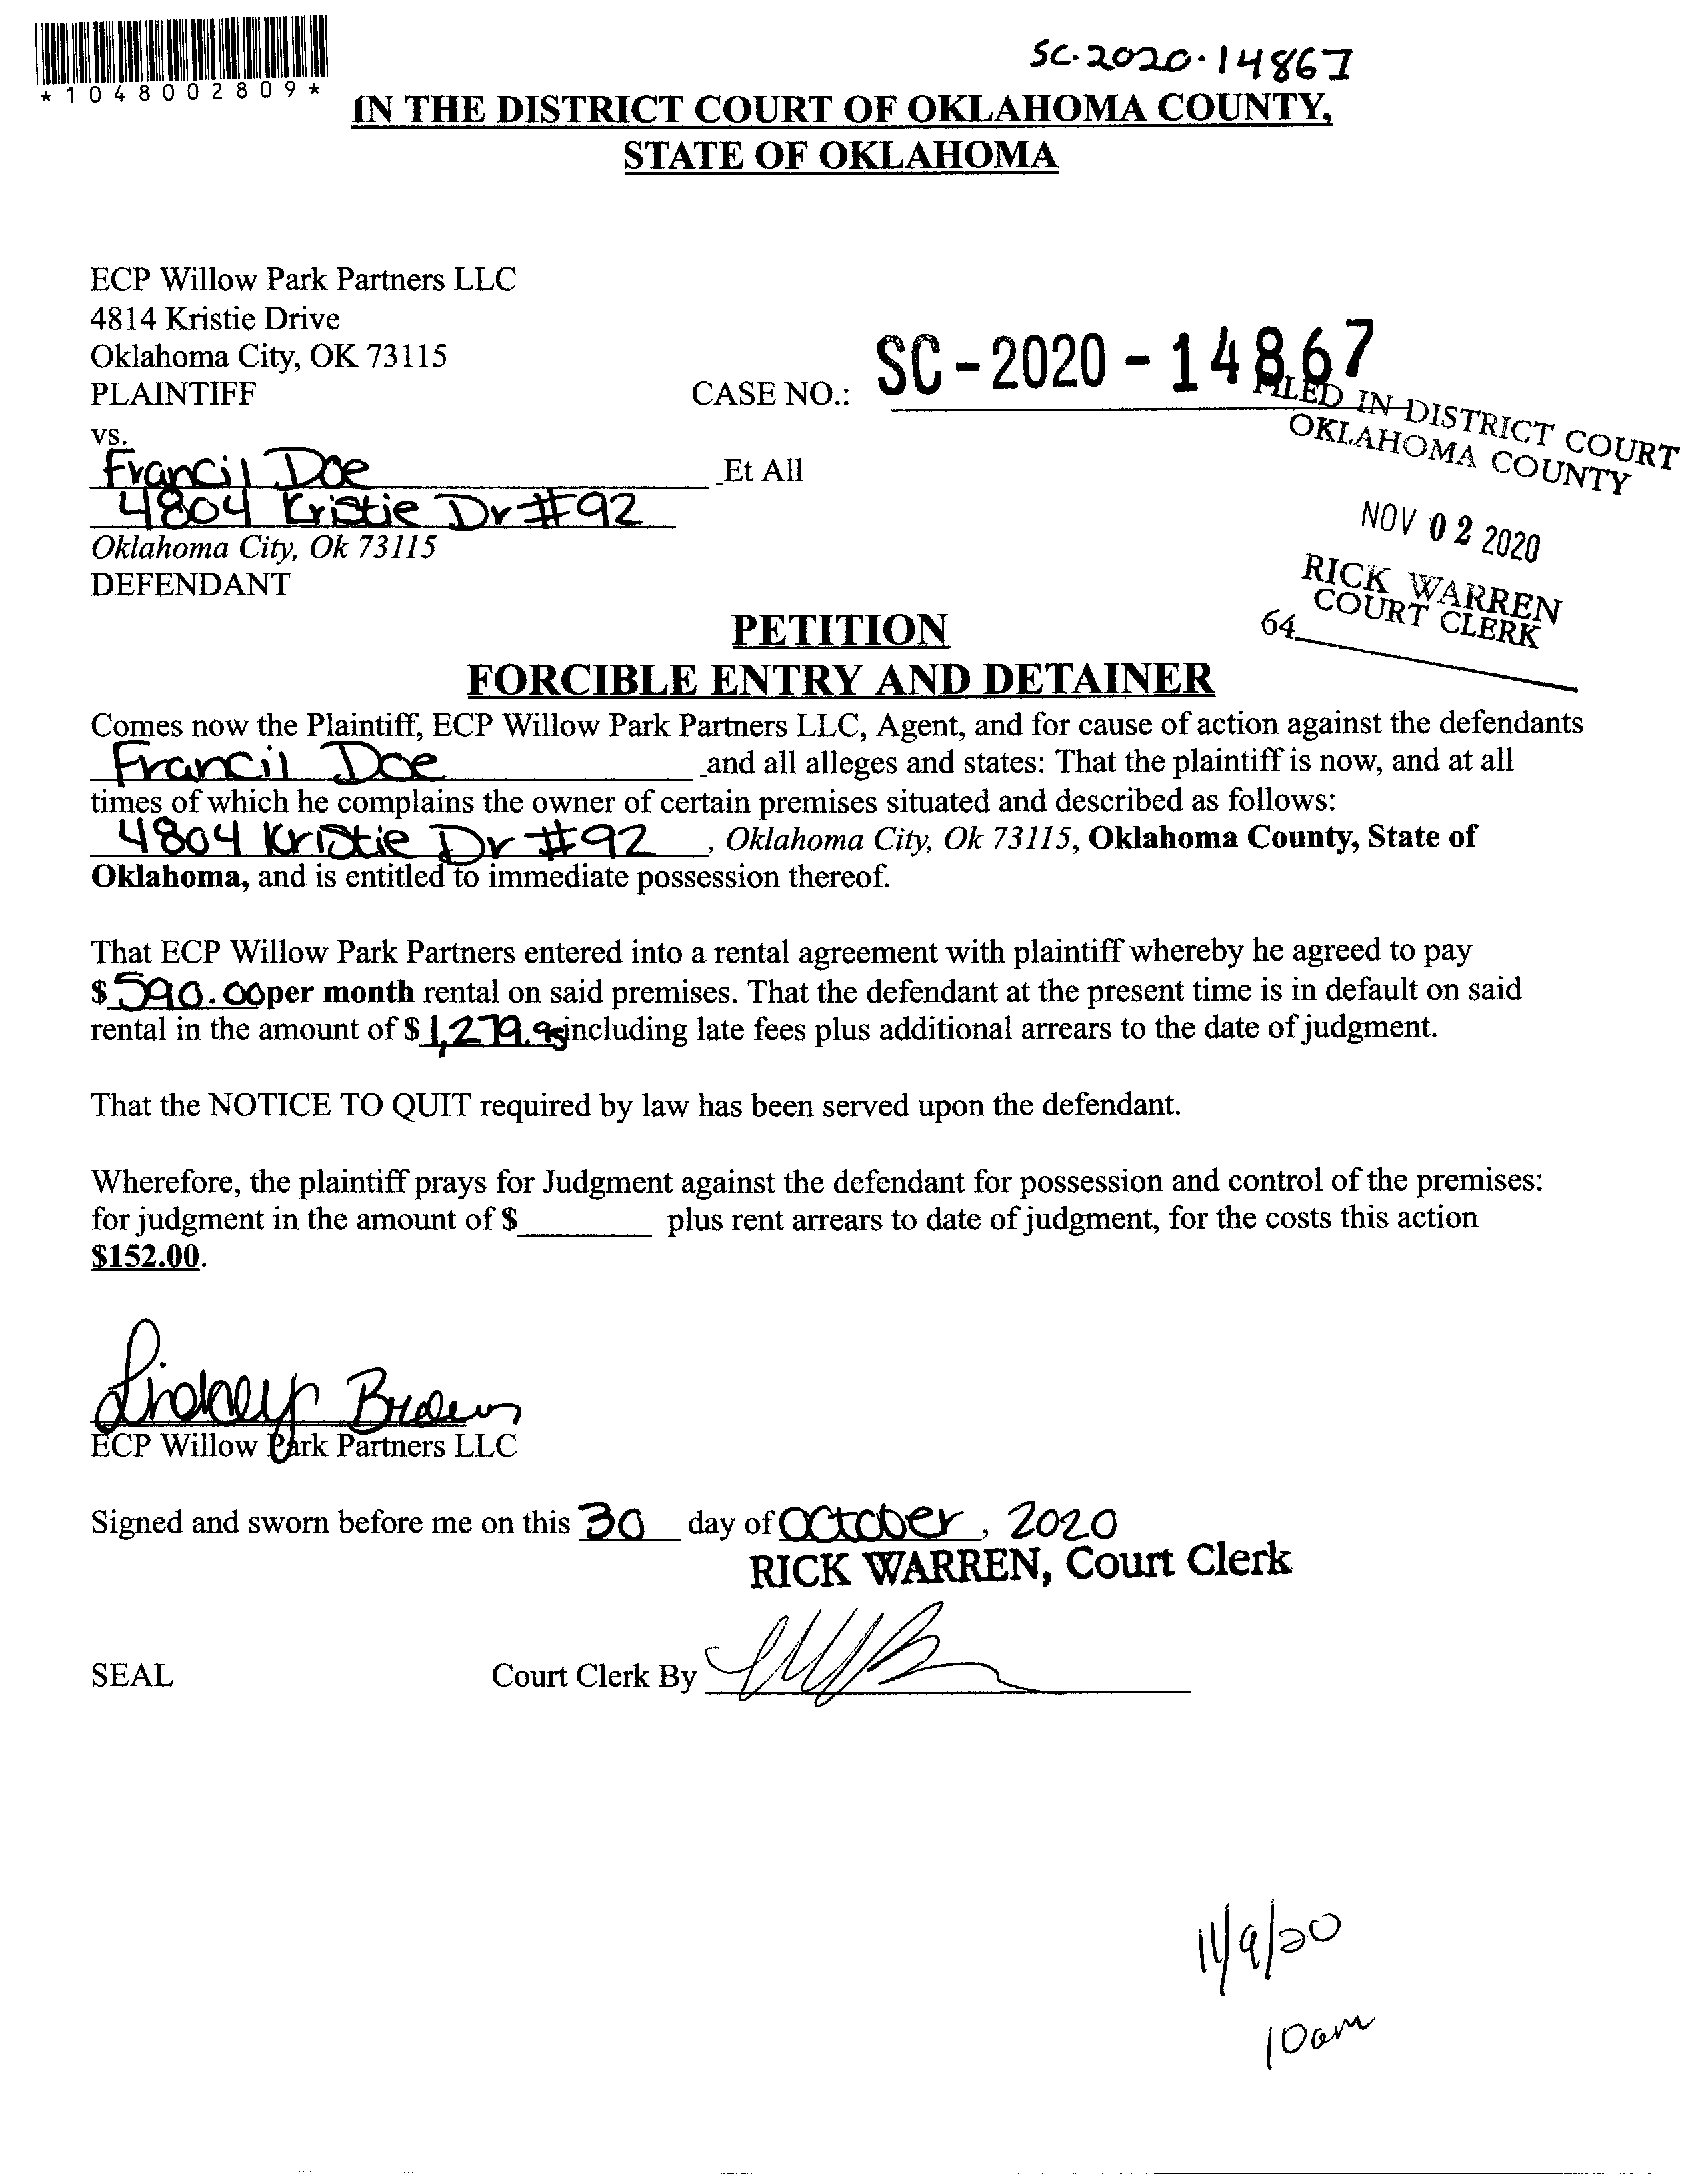 SC-2020-14867
*1048002809*
IN THE DISTRICT COURT OF OKLAHOMA COUNTY,
STATE OF OKLAHOMA
ECP Willow Park Partners LLC
4814 Kristie Drive
Oklahoma City, OK 73115
PLAINTIFF
CASE NO.: SC-2020-14867
vs.
FILED IN DISTRICT COURT
OKLAHOMA COUNTY
Francil Doe Et All
4804 Kristie Dr #92
NOV 02 2020
Oklahoma City, Ok 73115
DEFENDANT
RICK WARREN
COURT CLERK
64
PETITION
FORCIBLE ENTRY AND DETAINER
Comes now the Plaintiff, ECP Willow Park Partners LLC, Agent, and for cause of action against the defendants
Francil Doe and all alleges and states: That the plaintiff is now, and at all
times of which he complains the owner of certain premises situated and described as follows:
4804 Kristie Dr #92, Oklahoma City, Ok 73115, Oklahoma County, State of
Oklahoma, and is entitled to immediate possession thereof.
That ECP Willow Park Partners entered into a rental agreement with plaintiff whereby he agreed to pay
$590.00 per month rental on said premises. That the defendant at the present time is in default on said
rental in the amount of $1,279.95 including late fees plus additional arrears to the date of judgment.
That the NOTICE TO QUIT required by law has been served upon the defendant.
Wherefore, the plaintiff prays for Judgment against the defendant for possession and control of the premises:
for judgment in the amount of $________ plus rent arrears to date of judgment, for the costs this action
$152.00.
ECP Willow Park Partners LLC
Signed and sworn before me on this 30 day of October, 2020
RICK WARREN, Court Clerk
SEAL Court Clerk By
11/9/20
10am